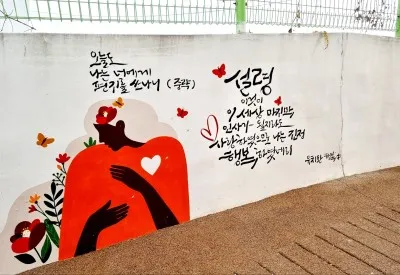 오늘도
나는 너에게
편지를 쓰나니 (중략)
설령
이것이
이 세상 마지막
인사가 될지라도
사랑하였으므로 나는 진정
행복하였네라